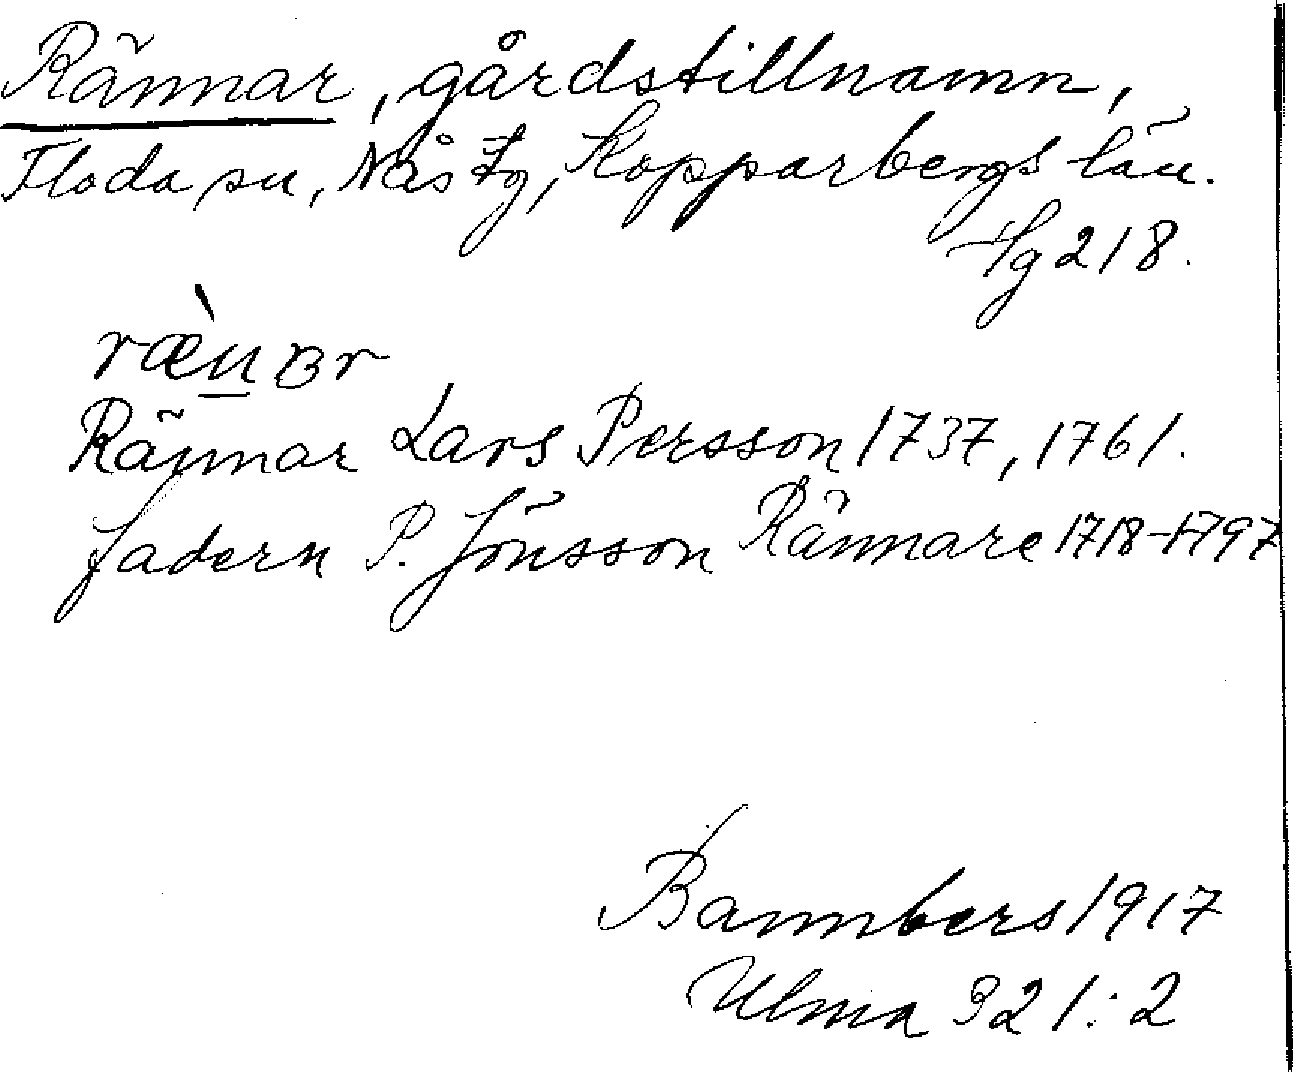 Rännar, gårdstillnamn,
Floda sn, Nås tg, Kopparbergs län.
Hg 218.
ræ̀nʙr
Rännar Lars Persson 1737, 1761.
fadern P. Jönsson Rännare 1718-1797
Bannbers 1917
Ulma 321:2